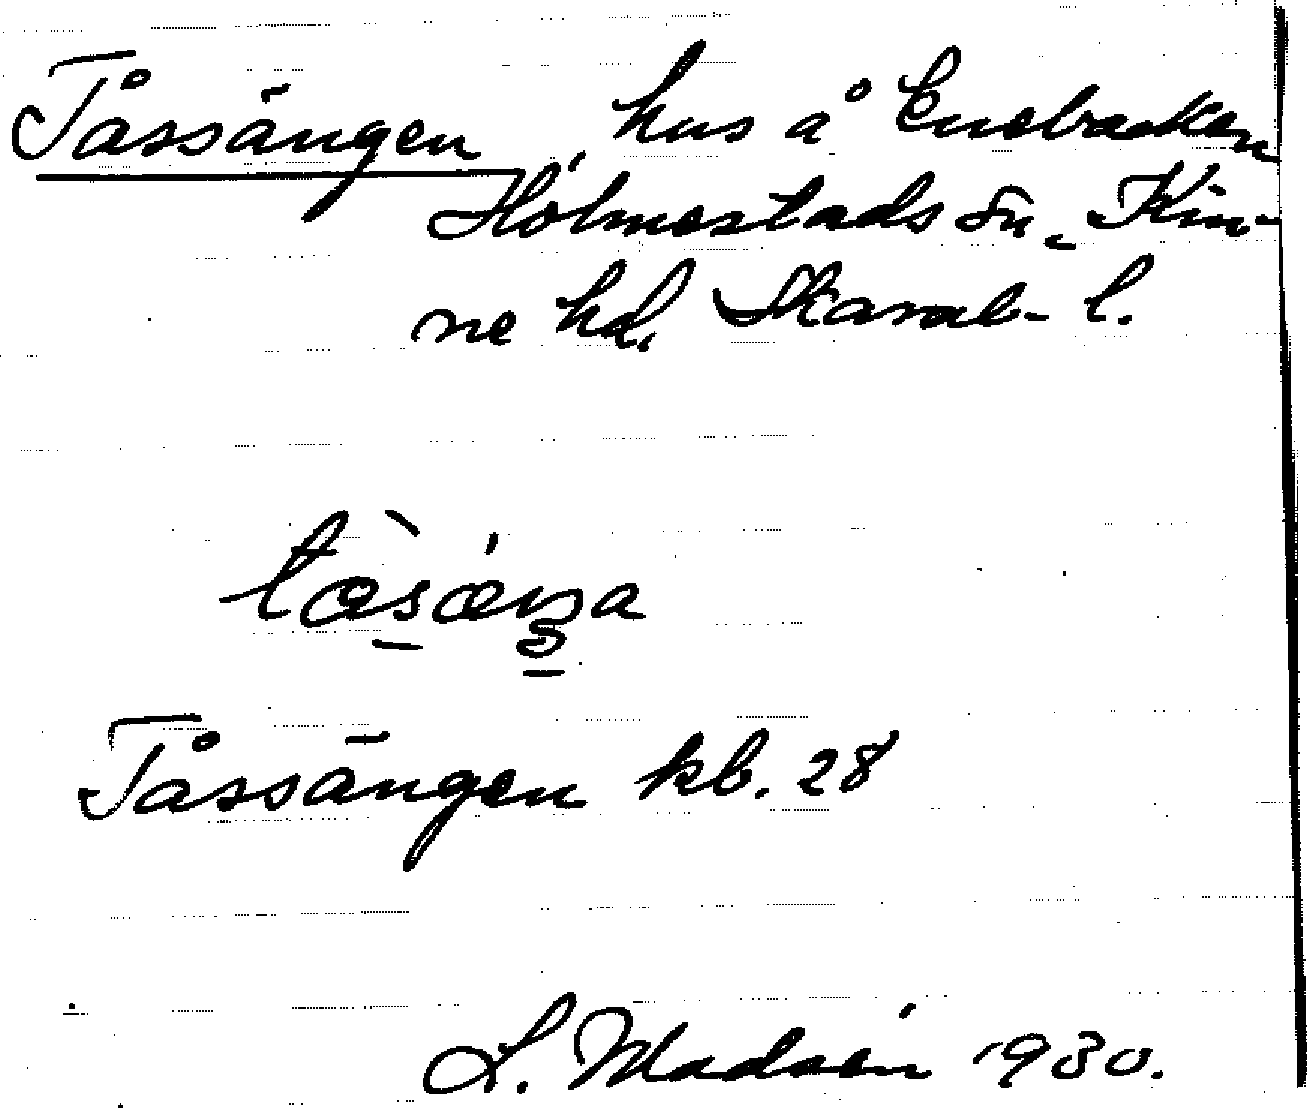 Tåssängen hus å Enebacken
Holmestads sn. Kin-
ne hd. Skarab- l.
Tåssängen kb. 28
L. Madsén 1930.